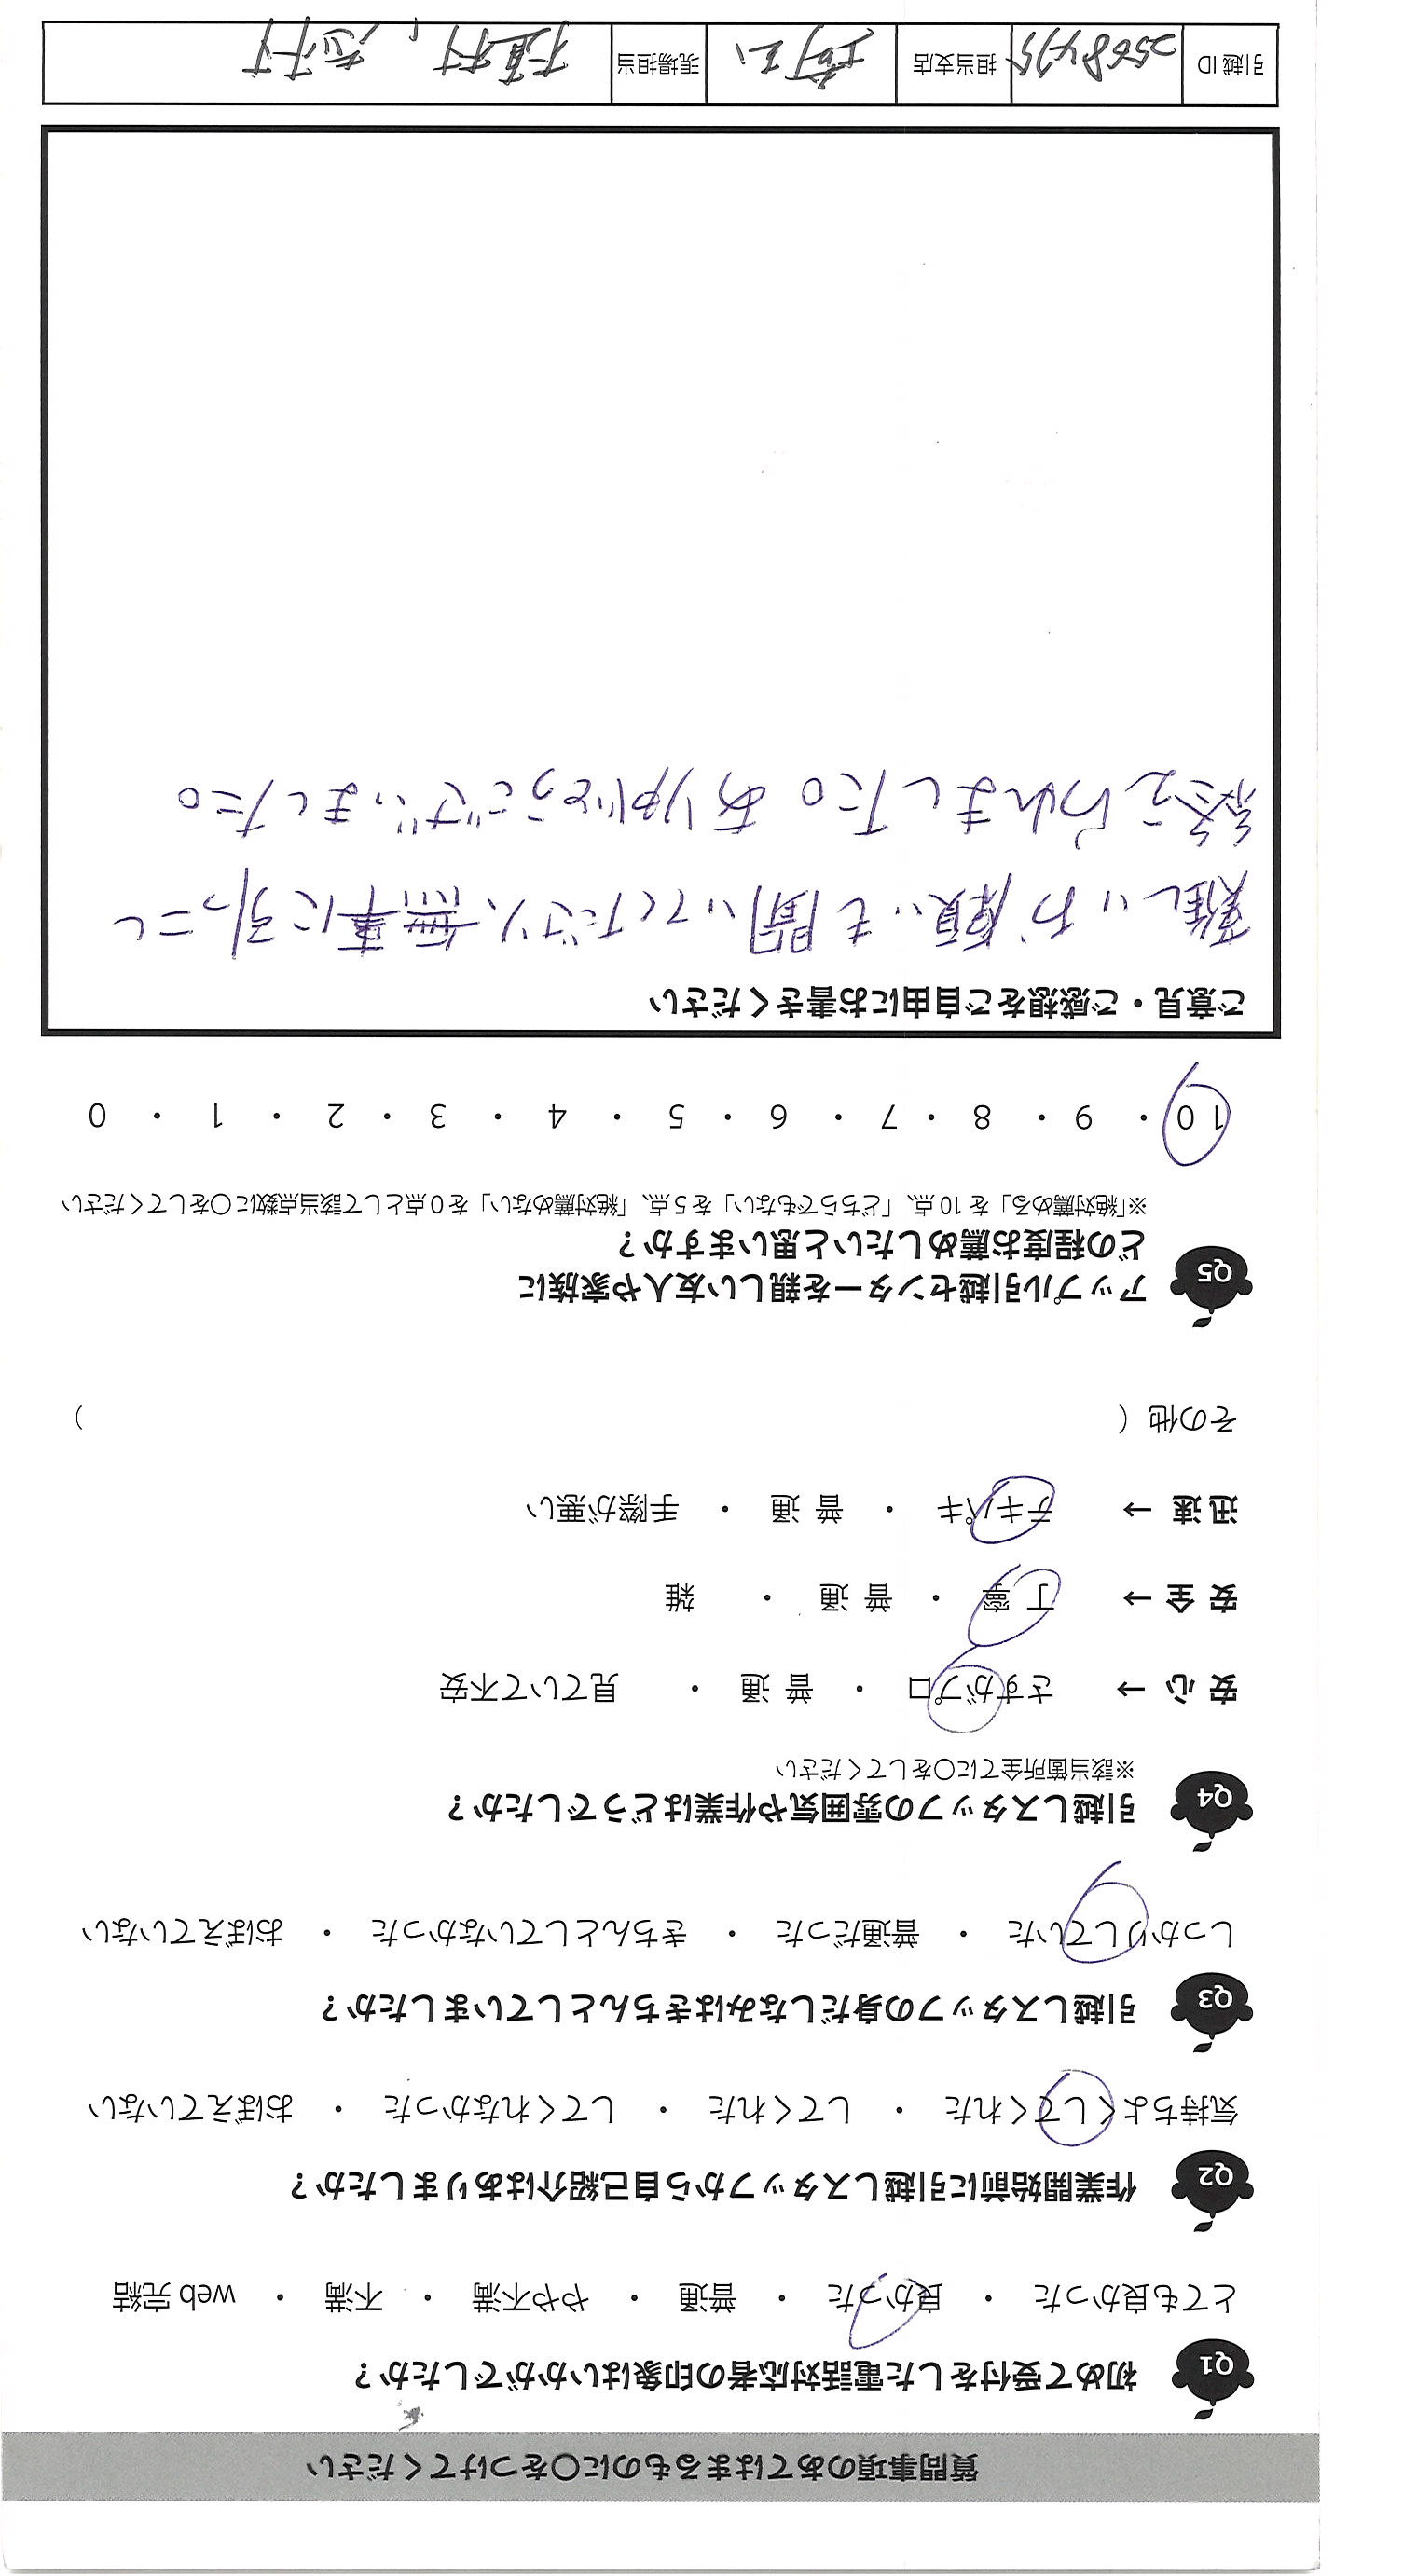 質問事項のあてはまるものに〇をつけてください
Q1 初めて受付をした電話対応者の印象はいかがでしたか？
とても良かった ・ 良かった ・ 普通 ・ やや不満 ・ 不満 ・ web 完結
Q2 作業開始前に引越しスタッフから自己紹介はありましたか？
気持ちよくしてくれた ・ してくれた ・ してくれなかった ・ おぼえていない
Q3 引越しスタッフの身だしなみはきちんとしていましたか？
しっかりしていた ・ 普通だった ・ きちんとしていなかった ・ おぼえていない
Q4 引越しスタッフの雰囲気や作業はどうでしたか？
※該当箇所全てに〇をしてください
安心 → さすがプロ ・ 普通 ・ 見ていて不安
安全 → 丁寧 ・ 普通 ・ 雑
迅速 → テキパキ ・ 普通 ・ 手際が悪い
その他（ ）
Q5 アップル引越センターを親しい友人や家族に
どの程度お薦めしたいと思いますか？
※「絶対薦める」を 10 点、「どちらでもない」を 5 点、「絶対薦めない」を 0 点として該当点数に〇をしてください
10 ・ 9 ・ 8 ・ 7 ・ 6 ・ 5 ・ 4 ・ 3 ・ 2 ・ 1 ・ 0
ご意見・ご感想をご自由にお書きください
難しいお願いも聞いてくださり、無事に引っこし
終えられました。ありがとうございました。
引越 ID 担当支店 埼玉 現場担当 植村、志村